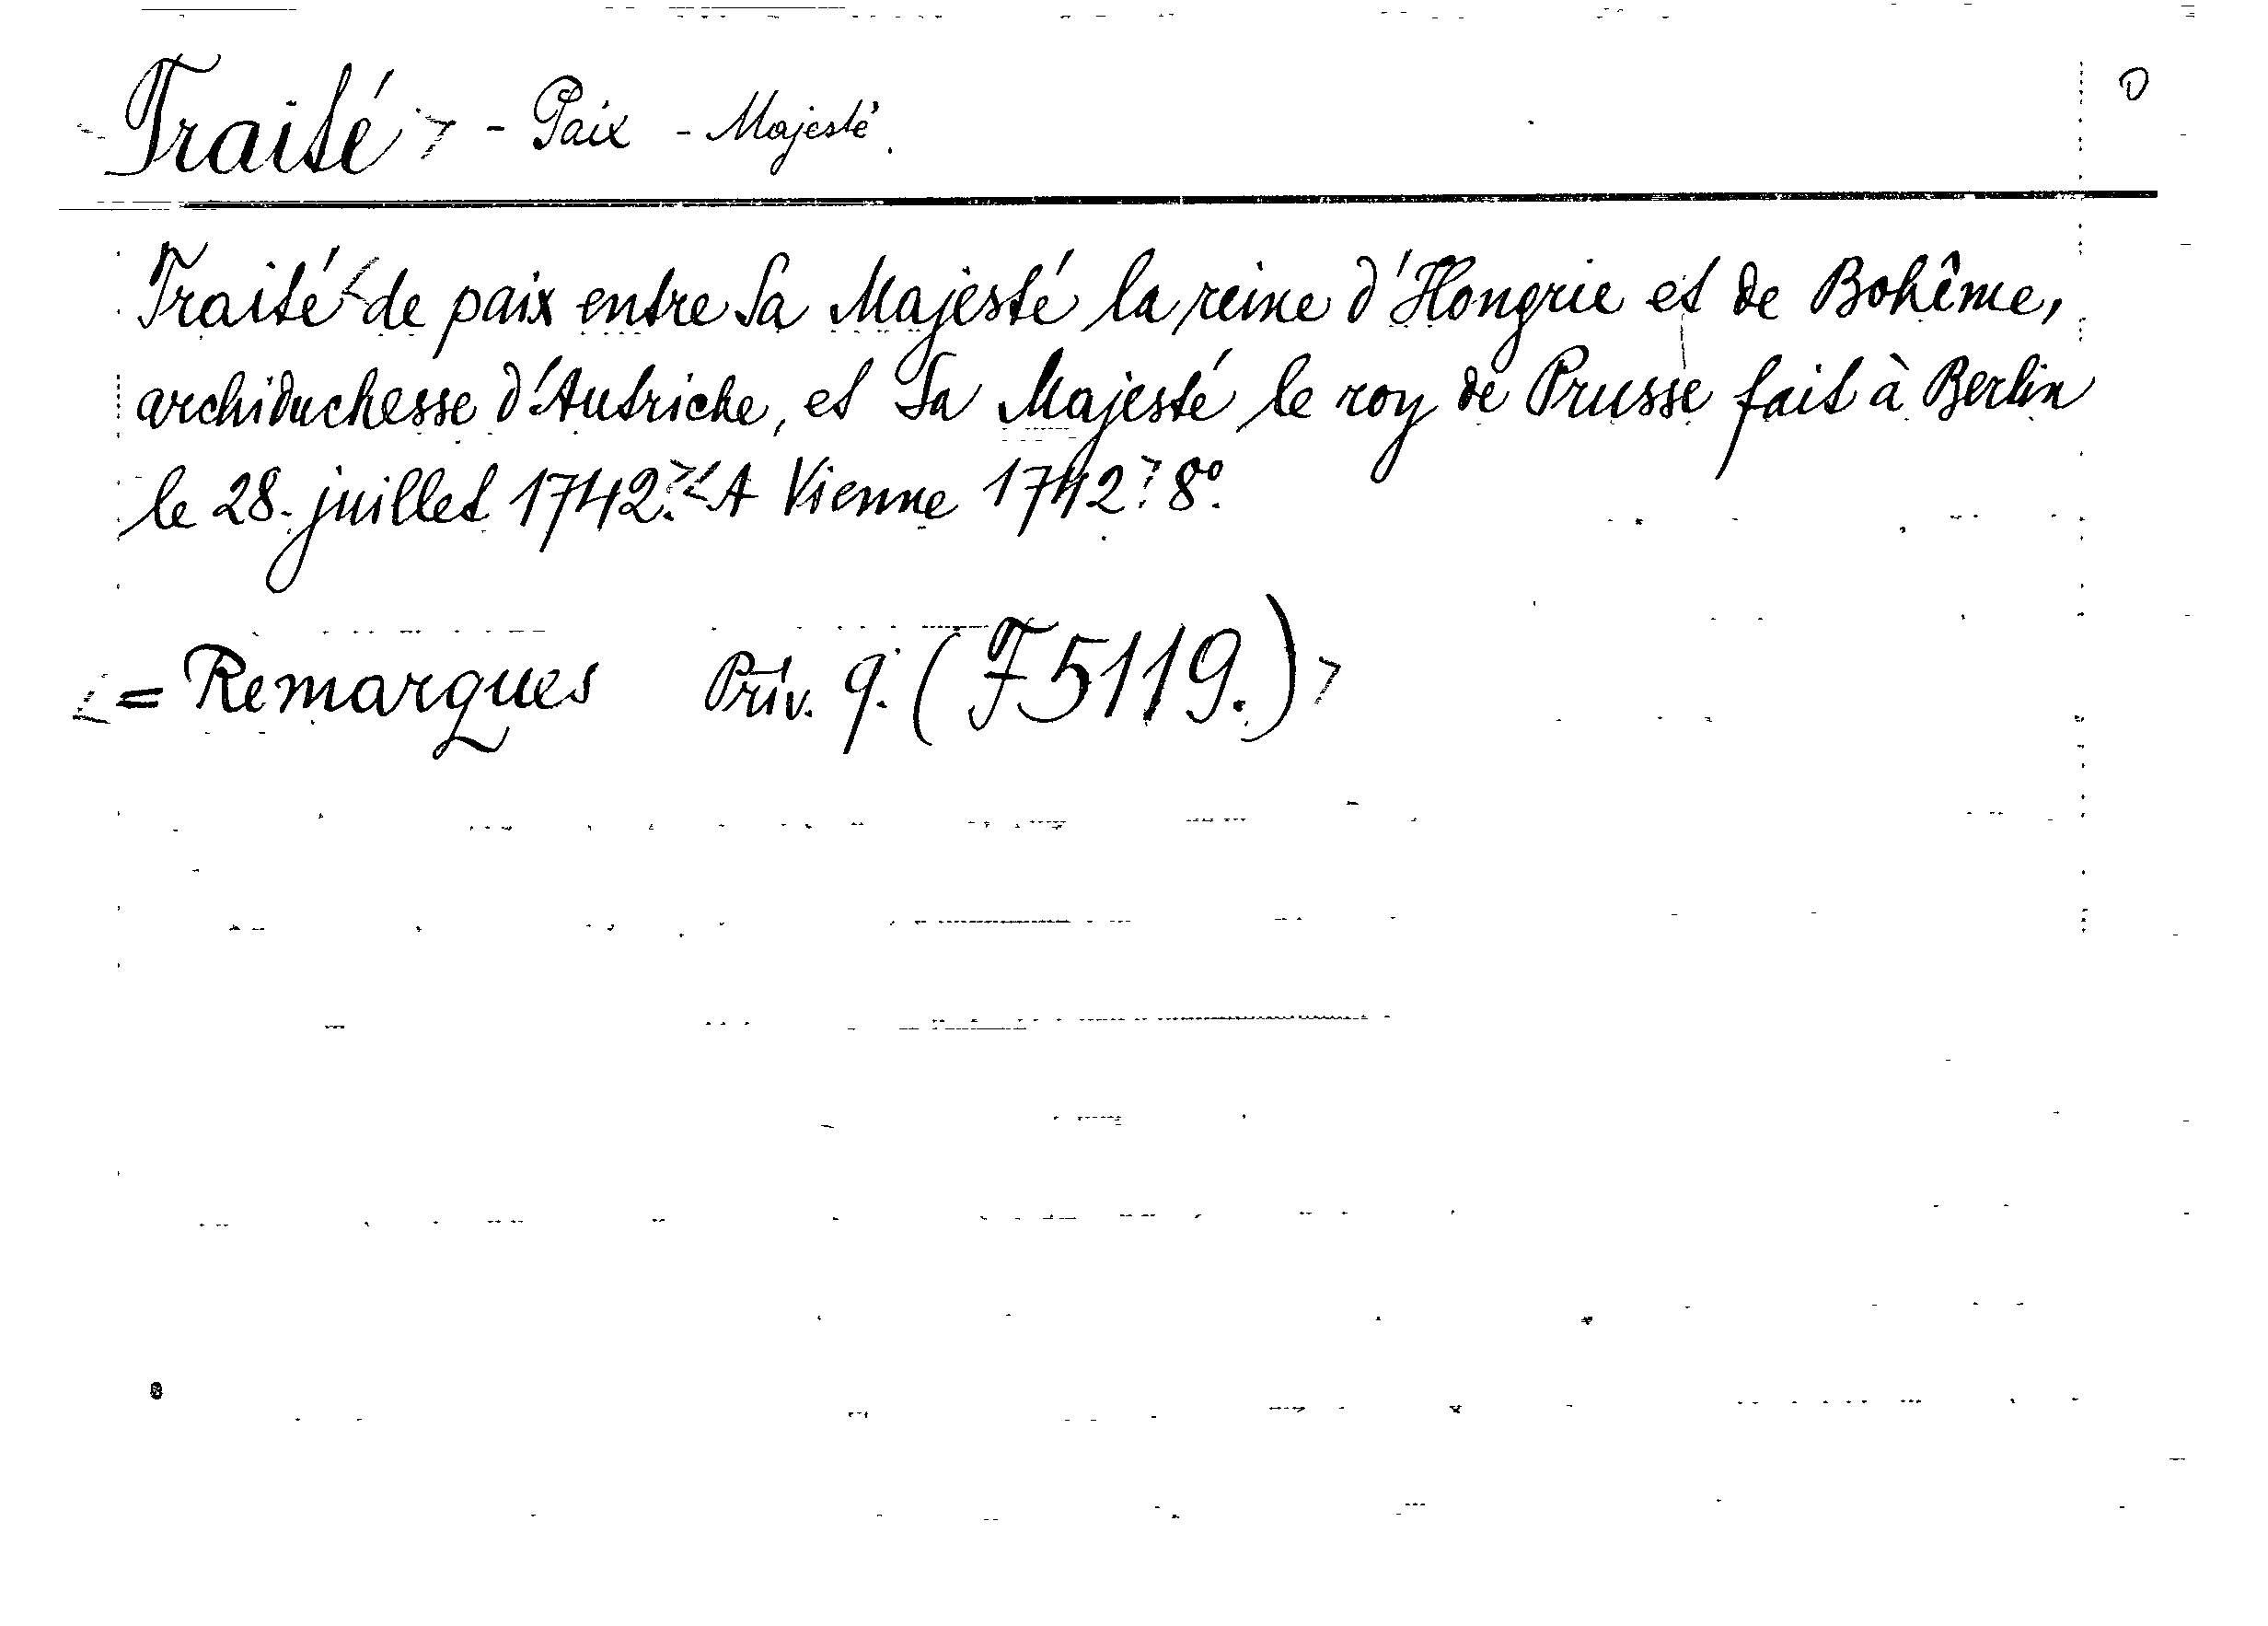 Traité - Paix - Majesté.
Traité de paix entre Sa Majesté la reine d'Hongrie et de Bohême,
archiduchesse d'Autriche, et Sa Majesté le roy de Prusse fait à Berlin
le 28. juillet 1742. A Vienne 1742. 8°.
= Remarques Priv. q. (F 5119.)